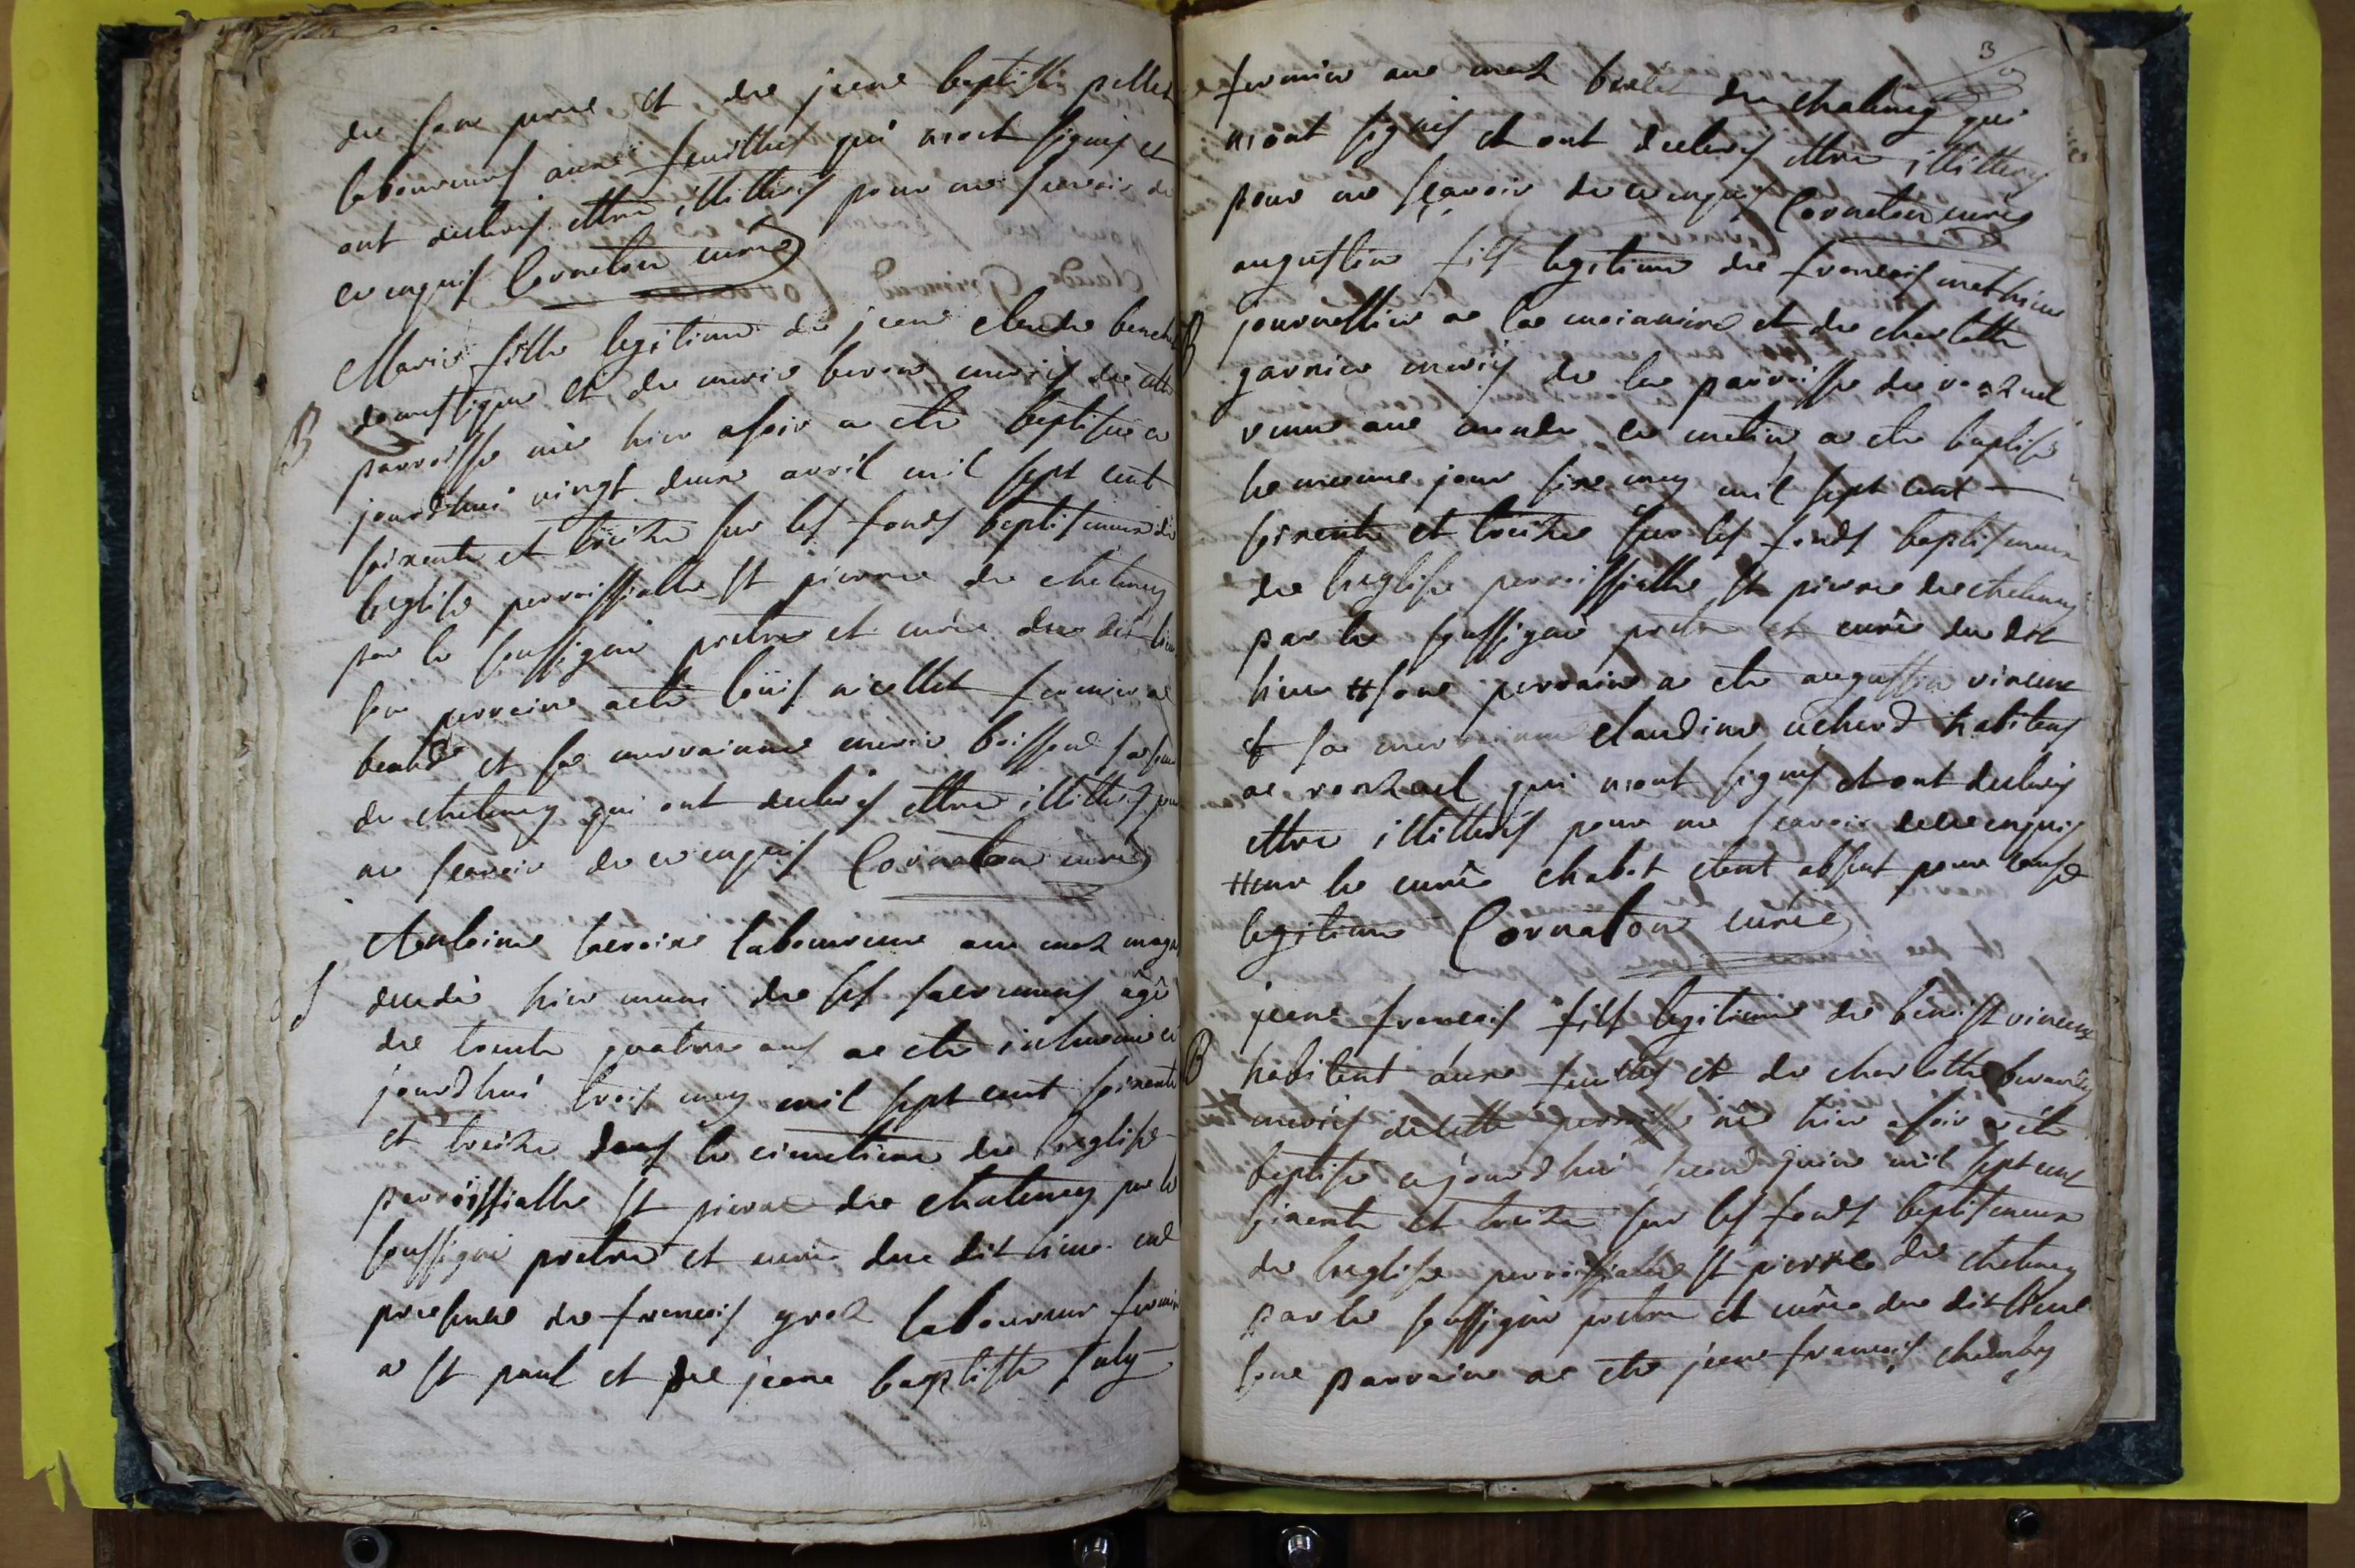 de son pere et de jean baptiste pellet
laboureurs aux feuilles qui n'ont signes et
ont declares ettre illitteres pour ne scavoir de
ce enquis Cornaton curé
Marie fille legitime de jean claude
domestique et de marie mariés de cette
B
parroisse née hier a soir a eté baptisée ce
jourd'hui vingt deux avril mil sept cent
soixante et treize sur les fonds baptismaux de
l'eglise parroissialle St pierre de chaleny
par le soussigné pretre et curé du dit lieu
son parraine a eté loüis nicollet fermier a
et sa marrainne marie boisson sa femme
de chaleny qui ont declares ettre illitteres pour
ne scavoir de ce enquis Cornaton curé
Antoine laboureur au maz
S
decedé hier muni de ses sacremens agé
de trente quatre ans a eté inhumé ce
jourd'hui trois may mil sept cent soixante
et treize dans le cimetiere de l'eglise
parroissialle St pierre de chaleny par le
soussigné pretre et curé du dit lieu en
presence de francois groz laboureur fermier
a St paul et de jean baptiste
3
fermier au maz de chaleny qui
n'ont signes et ont declares ettre illitteres
pour ne sçavoir de ce enquis Cornaton curé
augustin fils legitime de francois mathieu
B
journallier a la et de charlotte
garnier mariés de la parroisse de ronzuel
venu au monde ce matin a eté baptisé
le meme jour six may mil sept cent
soixante et treize sur les fonds baptismaux
de l'eglise parroissialle St pierre de chaleny
par le soussigné pretre et curé du dit
lieu # son parrain a eté augustin vincent
et sa marrainne claudine habitans
a ronzuel qui n'ont signes et ont declares
ettre illitteres pour ne scavoir de ce enquis
# mr le curé chabot etant absent pour cause
legitime Cornaton curé
jean francois fils legitime de benoist vincent
B
habitant aux feuilles et de charlotte
mariés de cette parroisse né hier a soir a eté
baptisé ce jourd'hui second juin mil sept cent
soixante et treize sur les fonds baptismaux
de l'eglise parroissialle St pierre de chaleny
par le soussigné pretre et curé du dit lieu
son parrain a eté jean francois